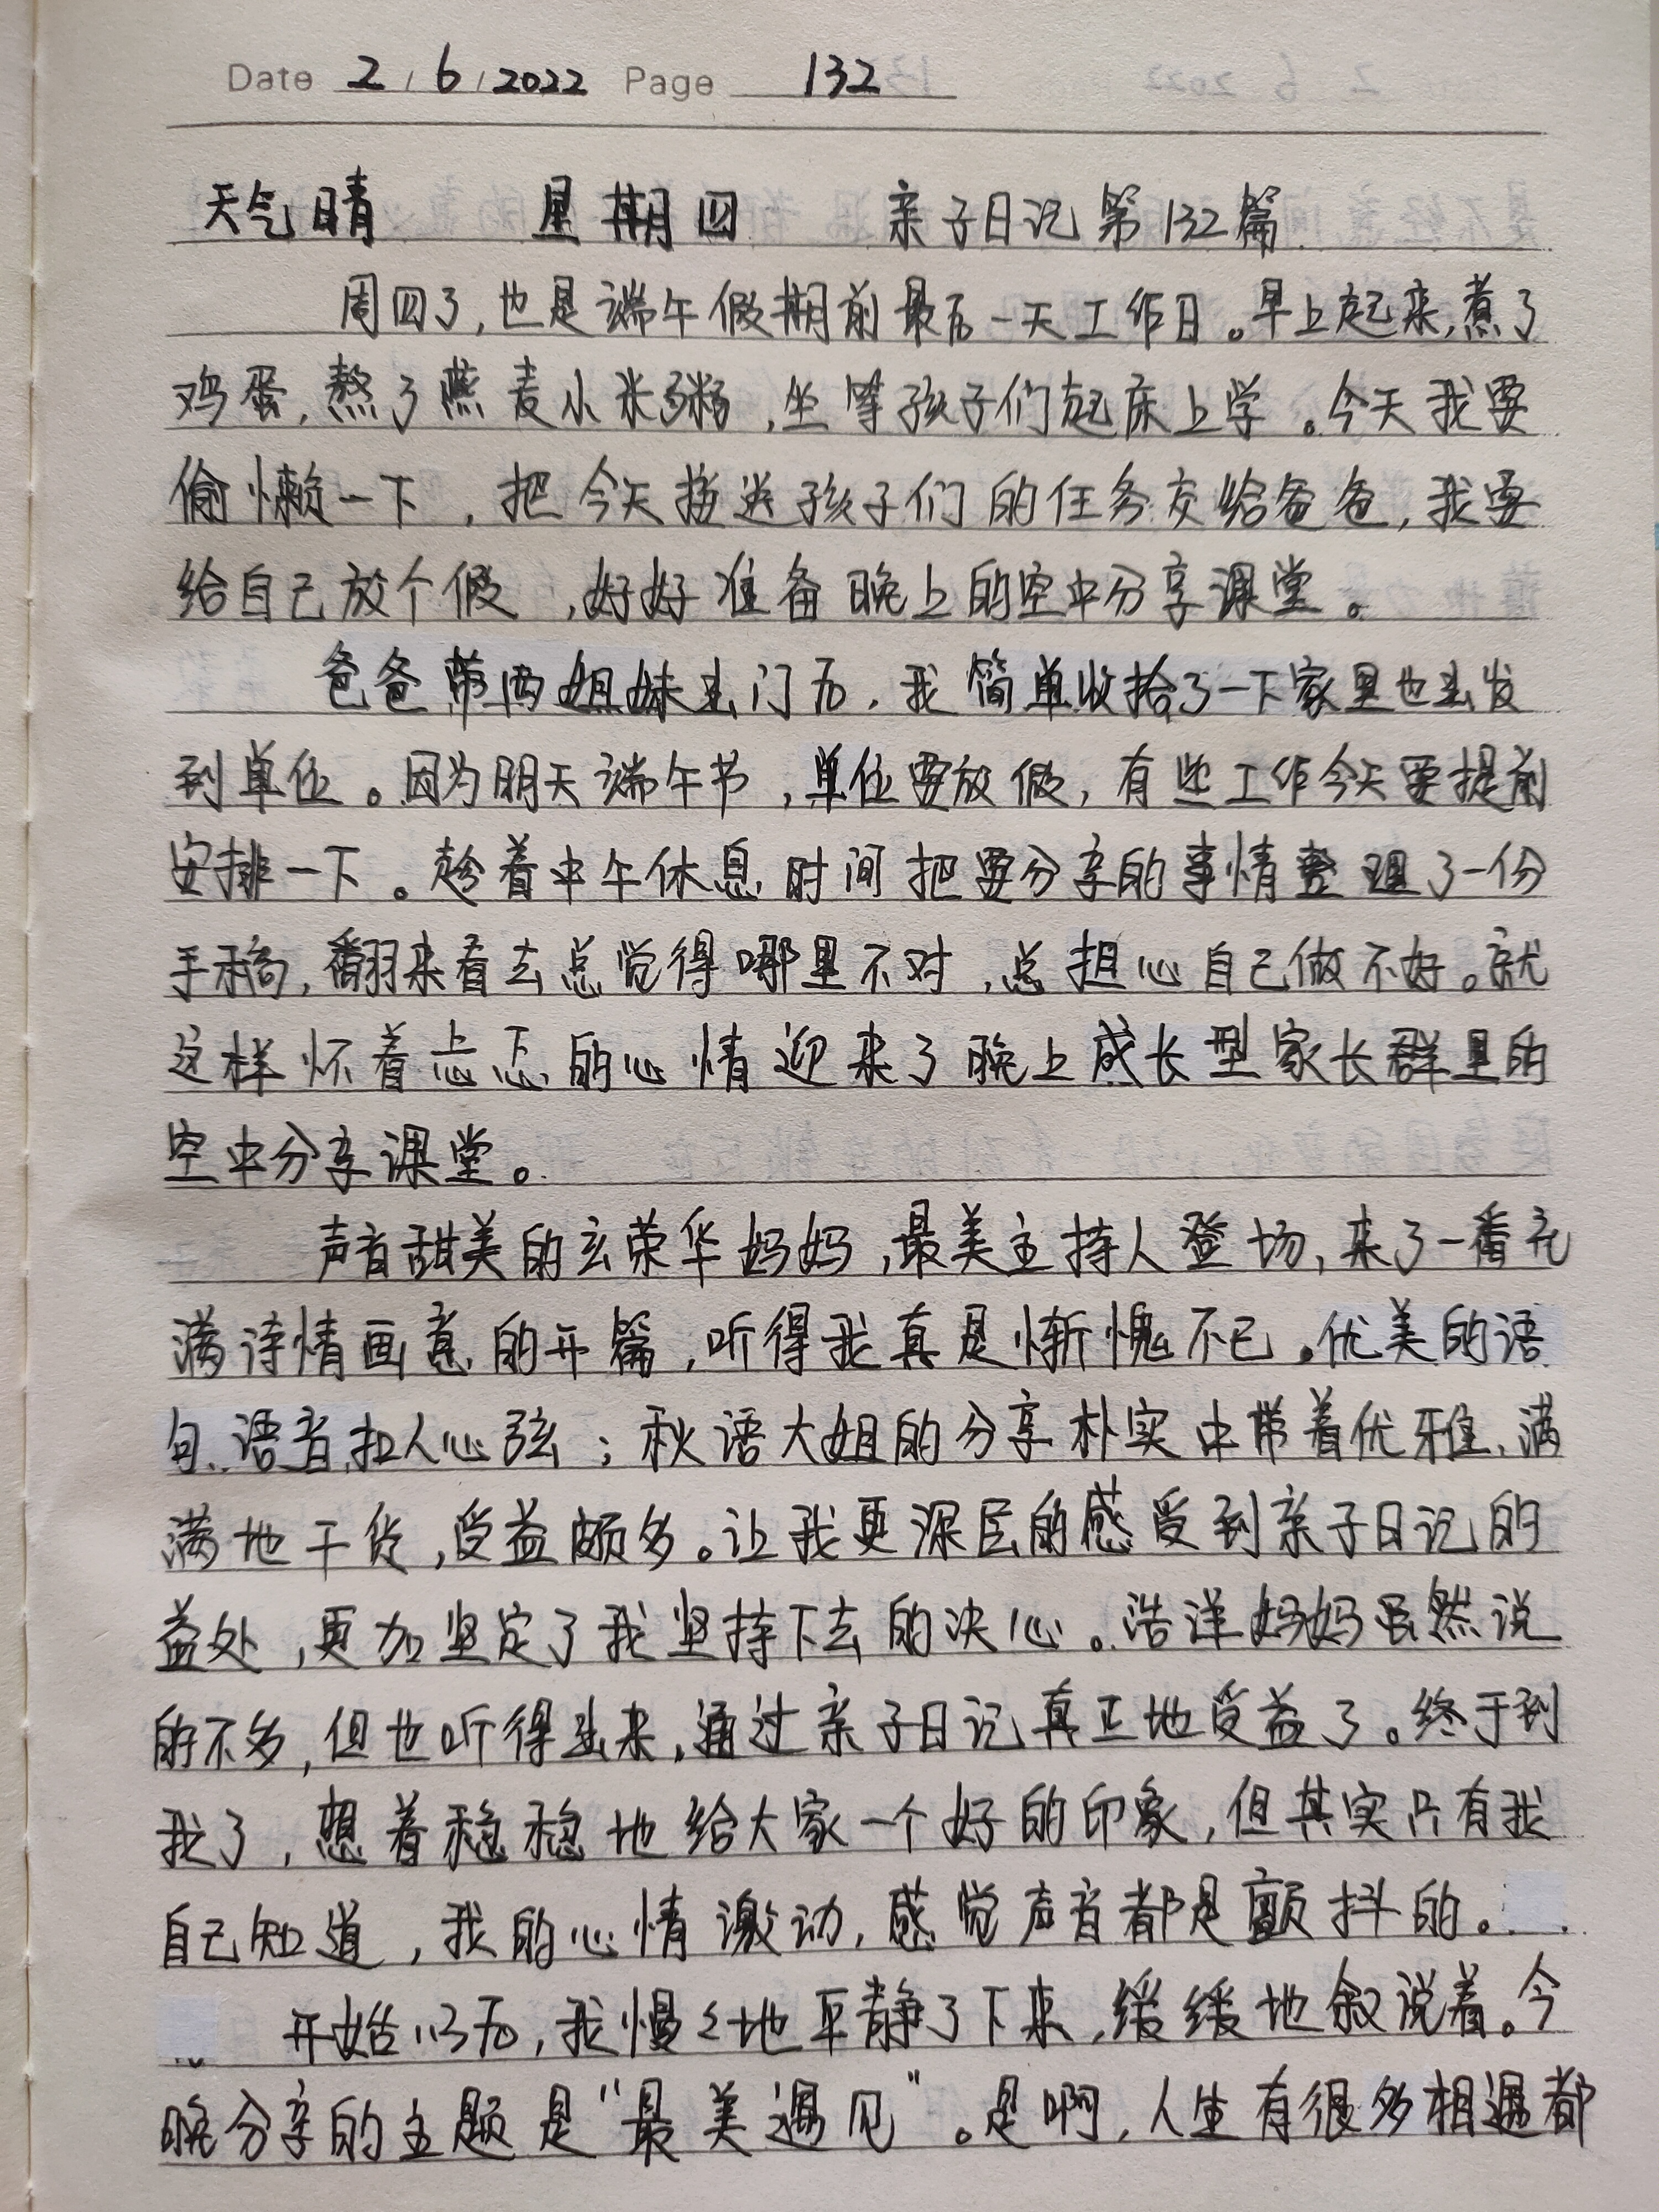 Date 2 / 6 / 2022 Page 132
天气晴 星期四 亲子日记第132篇
周四了,也是端午假期前最后一天工作日。早上起来,煮了
鸡蛋,熬了燕麦小米粥,坐等孩子们起床上学。今天我要
偷懒一下,把今天接送孩子们的任务交给爸爸,我要
给自己放个假,好好准备晚上的空中分享课堂。
爸爸带两姐妹出门后,我简单收拾了一下家里也出发
到单位。因为明天端午节,单位要放假,有些工作今天要提前
安排一下。趁着中午休息时间把要分享的事情整理了一份
手稿,翻来看去总觉得哪里不对,总担心自己做不好。就
这样怀着忐忑的心情迎来了晚上成长型家长群里的
空中分享课堂。
声音甜美的玄荣华妈妈,最美主持人登场,来了一番充
满诗情画意的开篇,听得我真是惭愧不已。优美的语
句、语音扣人心弦;秋语大姐的分享朴实中带着优雅、满
满地干货,受益颇多。让我更深层的感受到亲子日记的
益处,更加坚定了我坚持下去的决心。浩洋妈妈虽然说
的不多,但也听得出来,通过亲子日记真正地受益了。终于到
我了,想着稳稳地给大家一个好的印象,但其实只有我
自己知道,我的心情激动,感觉声音都是颤抖的。
开始以后,我慢々地平静了下来,缓缓地叙说着。今
晚分享的主题是“最美遇见”。是啊,人生有很多相遇都